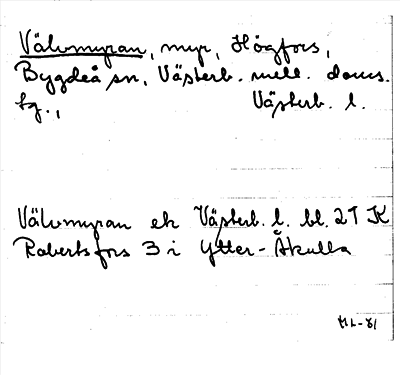 Välvmyran, myr, Högfors,
Bygdeå sn, Västerb. mell. doms.
tg., Västerb. l.
Välvmyran ek Västerb. l. bl. 21 JK
Robertsfors 3 i Ytter-Åkulla
ML-81